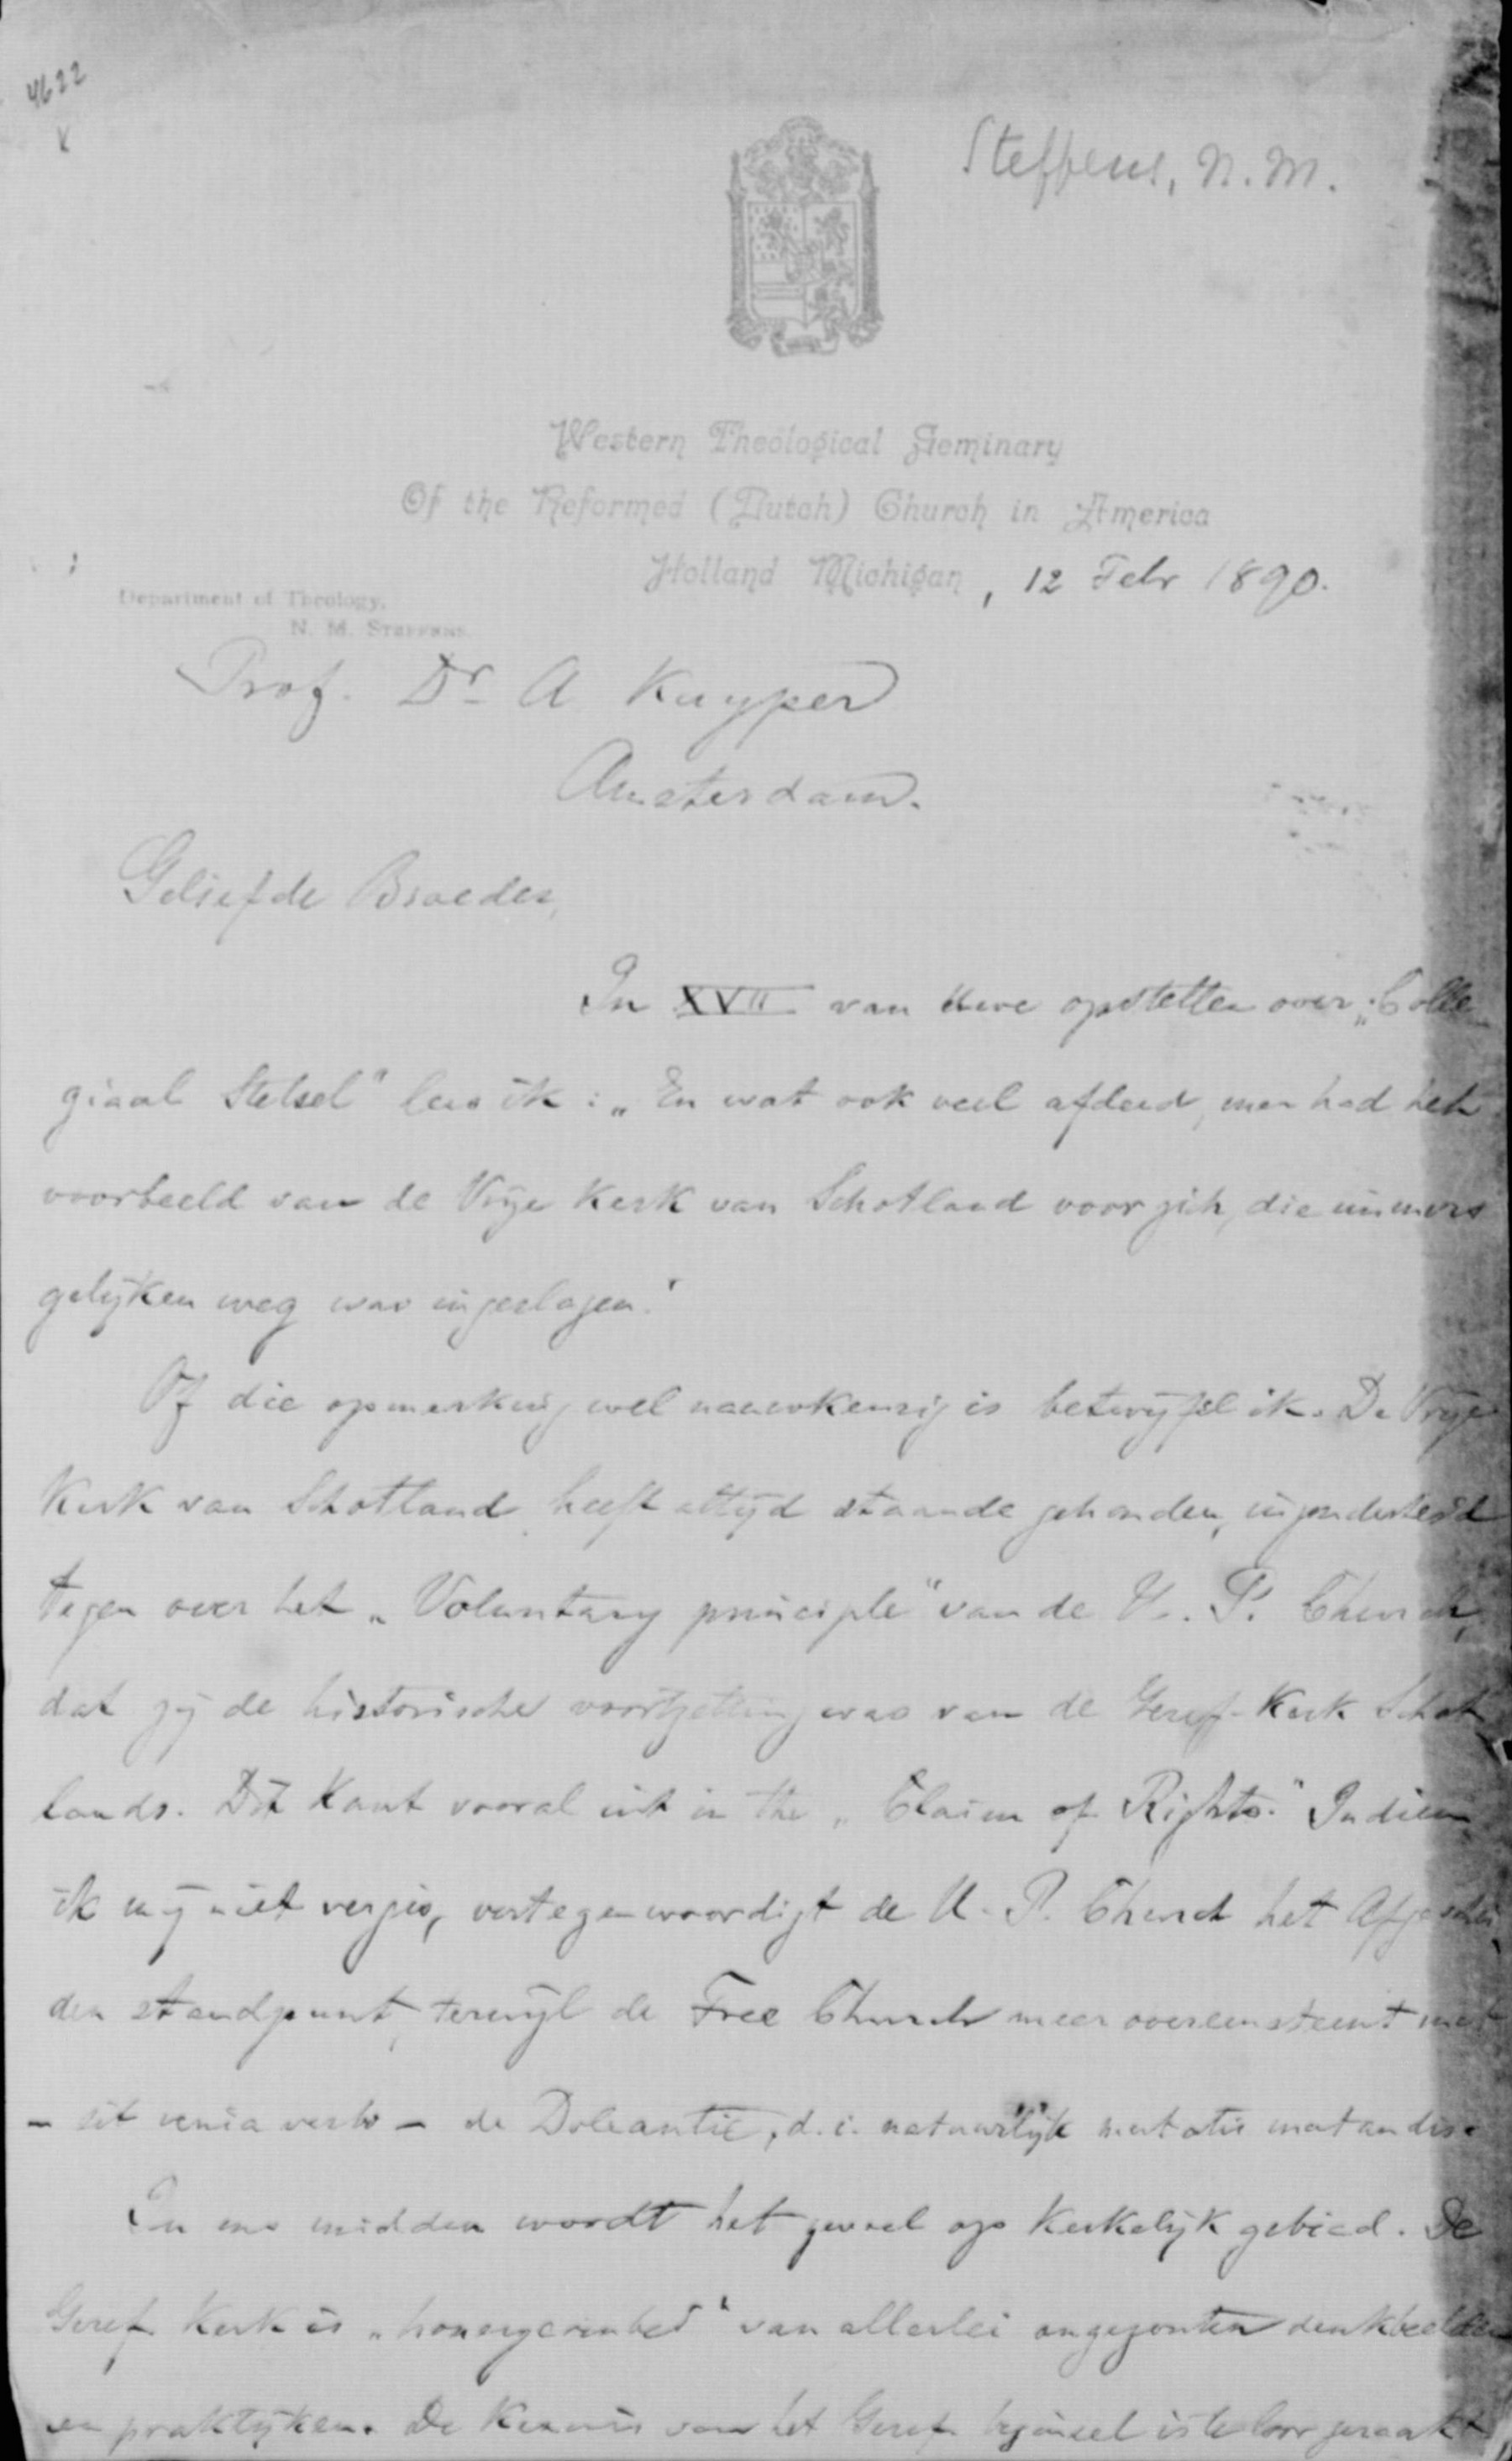 4622
Steffens, N. M.
Western Theological Seminary
Of the Reformed (Dutch) Church in America
Holland Michigan, 12 Febr 1890.
Department of Theology,
N. M. STEFFENS.
Prof. Dr A Kuyper
Amsterdam.
Geliefde Broeder,
In XVII van Uwe opstellen over „Colle
giaal Stelsel" lees ik: „En wat ook veel afdeed, men had het
voorbeeld van de Vrije Kerk van Schotland voor zich, die immers
gelijken weg was ingeslagen."
Of die opmerking wel nauwkeurig is betwijfel ik. De Vrije
Kerk van Schotland heeft altijd staande gehouden, inzonderheid
tegen over het „Voluntary principle" van de U. P. Church,
dat zij de historische voortzetting was van de Geref. Kerk Schot
lands. Dit komt vooral uit in the „Claim of Rights." Indien
ik mij niet vergis, vertegenwoordigt de U. P. Church het Afgeschei
den standpunt, terwijl de Free Church meer overeenstemt met
- sit venia verbo - de Doleantie, d. i. natuurlijk mutatis mutandis.
In ons midden wordt het zwoel op Kerkelijk gebied. De
Geref. Kerk is van allerlei ongezonde denkbeelden
en praktijken. De Kennis van het Geref. beginsel is te loor geraakt